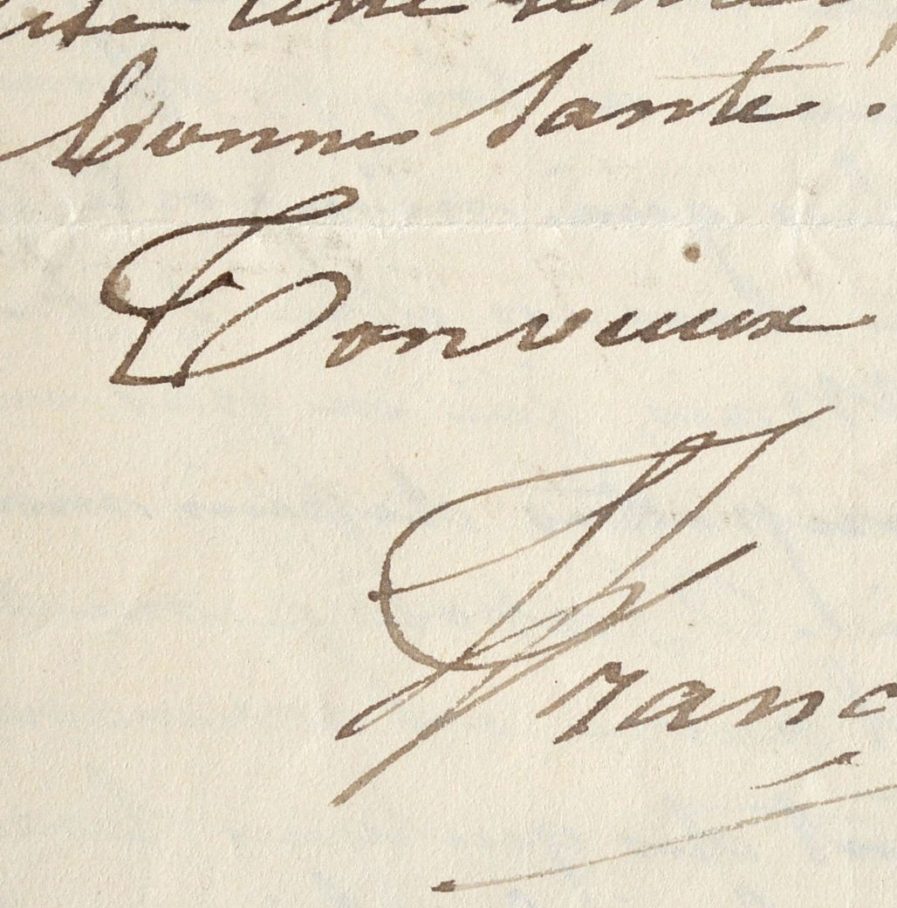 une
bonne santé !
Ton vieux
Franc